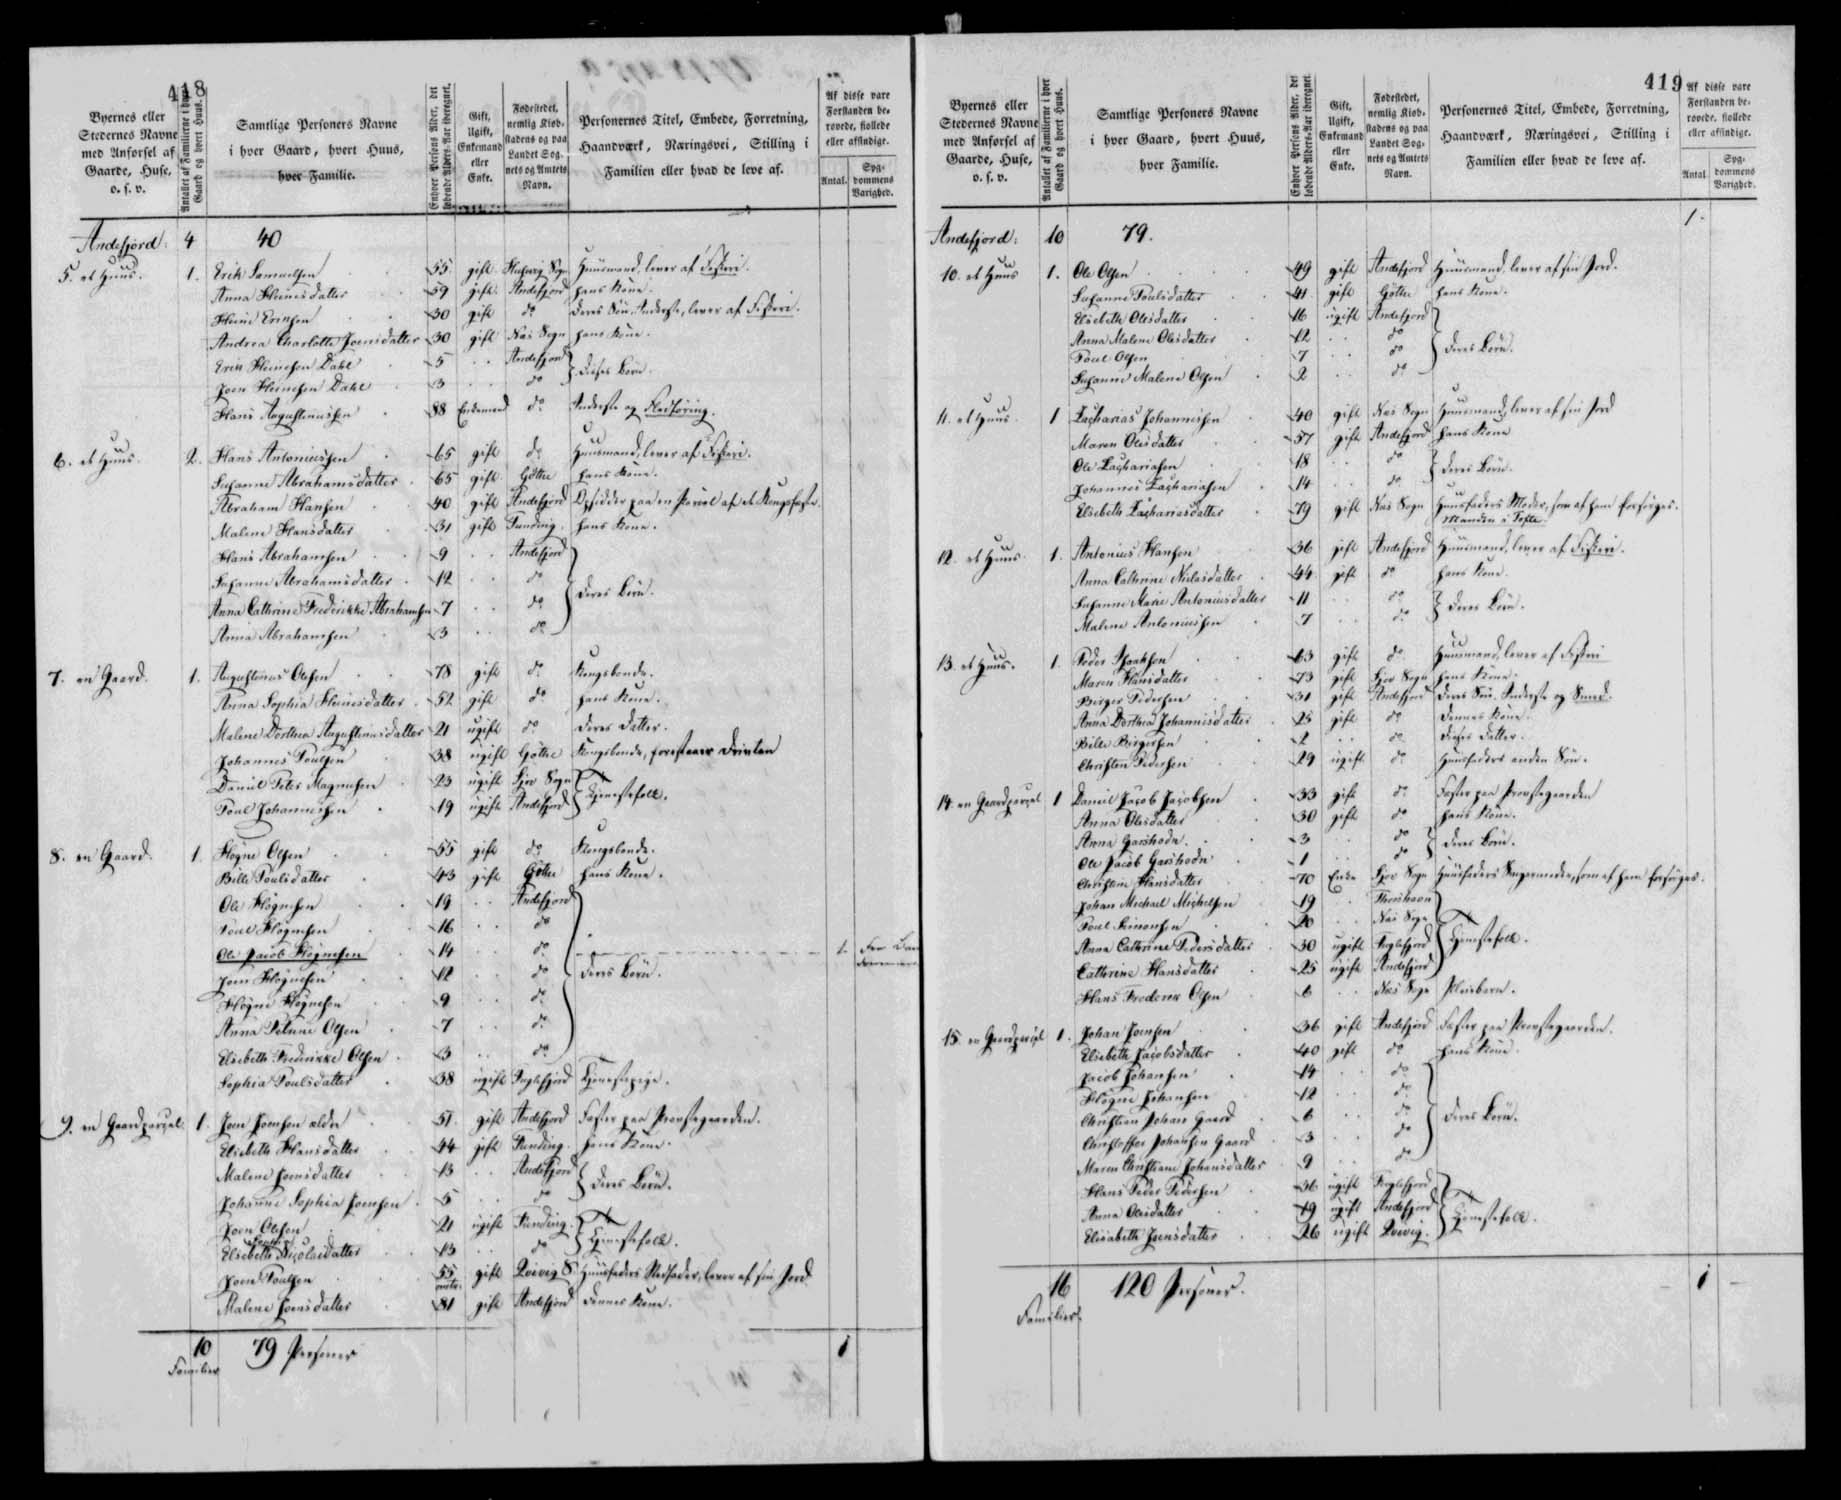 418
Byernes eller Stedernes Navne med Anførsel af Gaarde, Huse, o. s. v.
Antallet af Familierne i hver Gaard og hvert Huus.
Samtlige Personers Navne i hver Gaard, hvert Huus, hver Familie.
Enhver Persons Alder, det løbende Alders-Aar iberegnet.
Gift, Ugift, Enkemand eller Enke.
Fødestedet, nemlig Kiøbstadens og paa Landet Sognets og Amtets Navn.
Personernes Titel, Embede, Forretning, Haandværk, Næringsvei, Stilling i Familien eller hvad de leve af.
Af disse vare Forstanden berøvede, fiollede eller afsindige.
Antal. Sygdommens Varighed.
Andefjord: 4 40
5. et Huus. 1. Erik Samuelsen 55 gift Sogn Huusmand, lever af Fiskeri.
Anna Heinesdatter 59 gift Andefjord hans Kone.
Heine Eriksen 30 gift do deres Søn, Inderste, lever af Fiskeri.
Andrea Charlotte Joensdatter 30 gift Næs Sogn hans Kone.
Erik Heinesen Dahl 5 Andefjord disses Børn.
Joen Heinesen Dahl 3 do
Hans Augustinussen 88 Enkemand do Inderste og Fledføring.
6. et Huus. 2. Hans Antoniussen 65 gift do Huusmand, lever af Fiskeri.
Susanne Abrahamsdatter 65 gift Gøthe hans Kone.
Abraham Hansen 40 gift Andefjord Opsidder paa en Parcel af et Kongsfæste.
Malene Hansdatter 31 gift Funding hans Kone.
Hans Abrahamsen 9 Andefjord
Susanne Abrahamsdatter 12 do deres Børn.
Anna Cathrine Frederikke Abrahamsen 7 do
Anna Abrahamsen 3 do
7. en Gaard. 1. Augustinus Olesen 78 gift do Kongsbonde.
Anna Sophia Heinesdatter 52 gift do hans Kone.
Malene Dorthea Augustinusdatter 21 ugift do deres Datter.
Johannes Poulsen 38 ugift Gøthe Kongsbonde, forestaaer Driften
Daniel Peter Magnussen 23 ugift Sogn Tjenestefolk.
Poul Johannessen 19 ugift Andefjord
8. en Gaard. 1. Høgne Olsen 55 gift do Kongsbonde.
Bille Poulsdatter 43 gift Gøthe hans Kone.
Ole Høgnesen 19 Andefjord
Poul Høgnesen 16 do
Ole Jacob Høgnesen 14 do 1
Joen Høgnesen 12 do deres Børn.
Høgne Høgnesen 9 do
Anna Olsen 7 do
Elsebeth Frederikke Olsen 3 do
Sophia Poulsdatter 38 ugift Fuglefjord Tjenestepige.
9. en Gaardparcel. 1. Joen Joensen ældre 51 gift Andefjord Fæster paa Præstegaarden.
Elsebeth Hansdatter 44 gift Funding. hans Kone.
Malene Joensdatter 13 Andefjord deres Børn.
Johanne Sophia Joensen 5 do
Joen Olesen 21 ugift Funding. Tjenestefolk.
Elsebeth Nicolaidatter 13 do
Joen Poulsen 55 gift S. Huusfaders Stedfader, lever af sin Jord
Malene Joensdatter 81 gift Andefjord dennes Kone.
10 Familier 79 Personer 1
419
Byernes eller Stedernes Navne med Anførsel af Gaarde, Huse, o. s. v.
Antallet af Familierne i hver Gaard og hvert Huus.
Samtlige Personers Navne i hver Gaard, hvert Huus, hver Familie.
Enhver Persons Alder, det løbende Alders-Aar iberegnet.
Gift, Ugift, Enkemand eller Enke.
Fødestedet, nemlig Kiøbstadens og paa Landet Sognets og Amtets Navn.
Personernes Titel, Embede, Forretning, Haandværk, Næringsvei, Stilling i Familien eller hvad de leve af.
Af disse vare Forstanden berøvede, fiollede eller afsindige.
Antal. Sygdommens Varighed.
Andefjord: 10 79. 1.
10. et Huus 1. Ole Olsen 49 gift Andefjord Huusmand, lever af sin Jord.
Susanne Poulsdatter 41 gift Gøthe hans Kone.
Elsebeth Olesdatter 16 ugift Andefjord
Anna Malene Olesdatter 12 do deres Børn.
Poul Olsen 7 do
Susanne Malene Olsen 2 do
11. et Huus 1 Zacharias Johannessen 40 gift Næs Sogn Huusmand, lever af sin Jord
Maren Olesdatter 57 gift Andefjord hans Kone
Ole Zachariasen 18 do deres Børn.
Johannes Zachariasen 14 do
Elsebeth Zachariasdatter 79 gift Næs Sogn Huusfaders Moder, som af ham forsørges. Manden i Tofte.
12. et Huus 1. Antonius Hansen 36 gift Andefjord Huusmand, lever af Fiskeri.
Anna Cathrine Nielsdatter 44 gift do hans Kone.
Susanne Marie Antoniusdatter 11 do deres Børn.
Malene Antoniussen 7 do
13. et Huus. 1. Peder Isaksen 63 gift do Huusmand, lever af Fiskeri
Maren Hansdatter 73 gift Sogn hans Kone.
Birger Pedersen 31 gift Andefjord deres Søn, Inderste og Smed.
Anna Dorthea Johannesdatter 25 gift do dennes Kone.
Bille Birgersen 2 do disses Datter.
Christen Pedersen 29 ugift do Huusfaders anden Søn.
14. en Gaardparcel 1 Daniel Jacob Jacobsen 33 gift do Fæster paa Præstegaarden
Anna Olesdatter 30 gift do hans Kone.
Anna Garshodn 3 do deres Børn.
Ole Jacob Garshodn 1 do
Christine Hansdatter 70 Enke Sogn Huusfaders Svigermoder, som af ham forsørges.
Johan Michael Michelsen 19 Thorshavn
Poul Simonsen 20 Næs Sogn
Anna Cathrine Pedersdatter 30 ugift Fuglefjord Tjenestefolk.
Cathrine Hansdatter 25 ugift Andefjord
Hans Frederik Olsen 6 Næs Sogn Pleiebarn.
15. en Gaardparcel 1. Johan Joensen 36 gift Andefjord Fæster paa Præstegaarden.
Elsebeth Jacobsdatter 40 gift do hans Kone.
Jacob Johansen 14 do
Høgne Johansen 12 do
Christian Johan Gaard 6 do deres Børn.
Christoffer Johansen Gaard 3 do
Maren Christiane Johansdatter 9 do
Hans Peder Pedersen 36 ugift Fuglefjord
Anna Olesdatter 19 ugift Andefjord Tjenestefolk.
Elisabeth Joensdatter 26 ugift
16 Familier. 120 Personer. 1